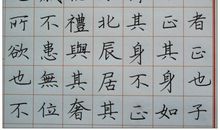 者正也子
正其身如
其身不正
北辰居其
禮與其奢
不患無位
所欲也不